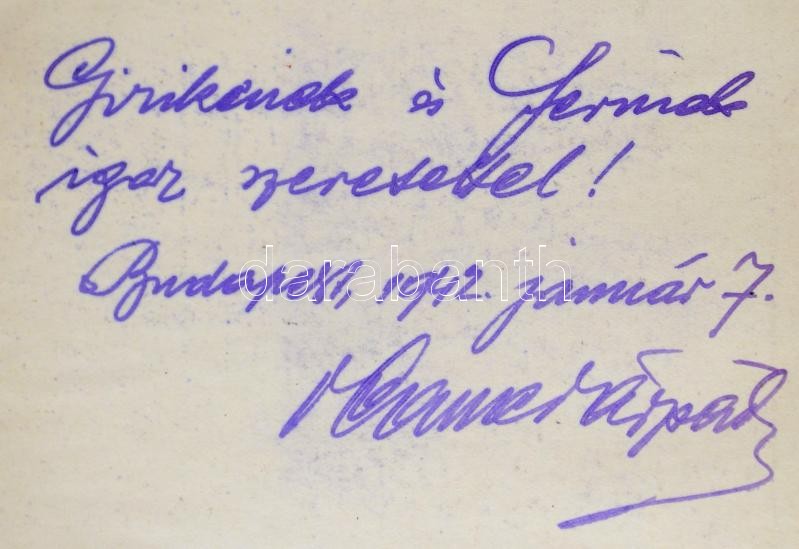 Girikének és Ferinek
igaz szeretettel!
Budapest, 1942. január 7.
Árpád
darabanth